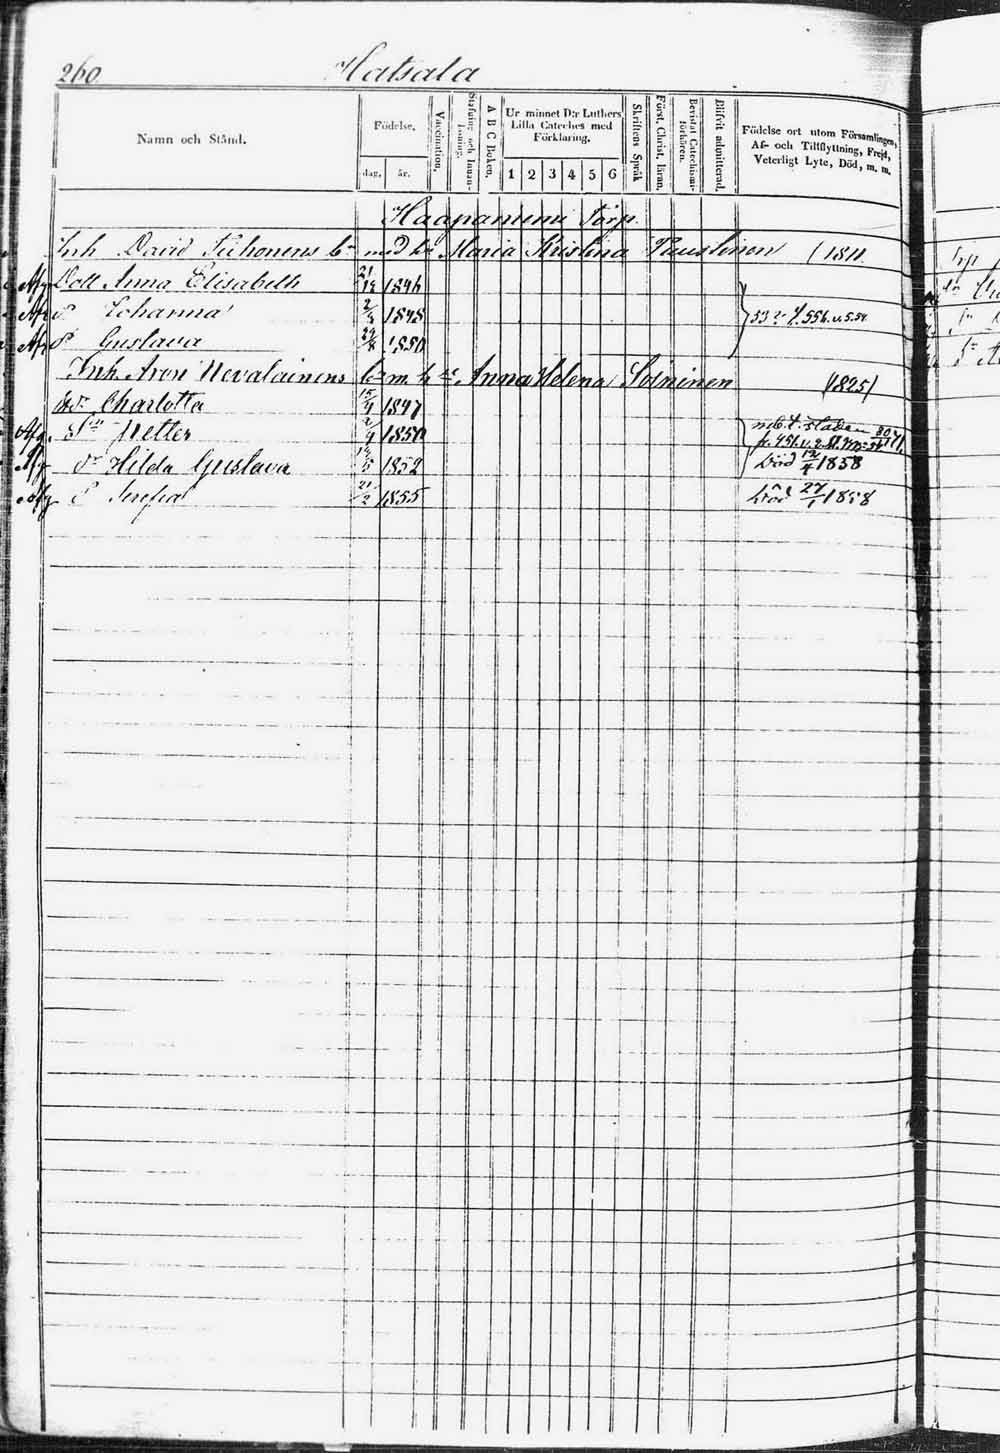 260 Hatsala
Namn och Stånd.
Födelse,
dag. år.
Vaccination.
Stafning och Innan-läsning.
A B C Boken.
Ur minnet D:r Luthers
Lilla Cateches med
Förklaring.
1 2 3 4 5 6
Skriftens Språk
Först. Christ. läran.
Bevistat Catechismi-förhören.
Blifvit admitterad.
Födelse ort utom Församlingen,
Af- och Tillflyttning, Frejd,
Veterligt Lyte, Död, m. m.
Haapaniemi Torp
Inh David Tiihonens bn med hu Maria Kristina Ruuskonen / 1811
Afg Dott Anna Elisabeth 21/12 1846
Johanna 1848
Gustava 1850
Inh. Aron Nevalainens bn m. hu Anna Helena Soininen /1825/
Dr Charlotta 15/4 1847
Afg. Sn Petter 2/4 1850
Dr Hilda Gustava 1852 död 12/4 1858
Serefia 21/2 1855 död 27/1 1858